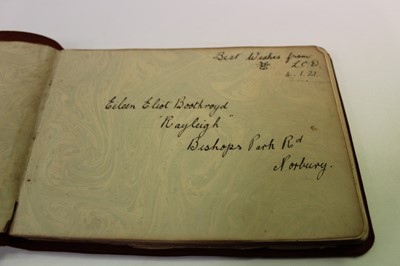 Best Wishes from
L.C.D.
4.1.21.
Eileen Eliot Boothroyd
"Rayleigh"
Bishops Park Rd
Norbury.